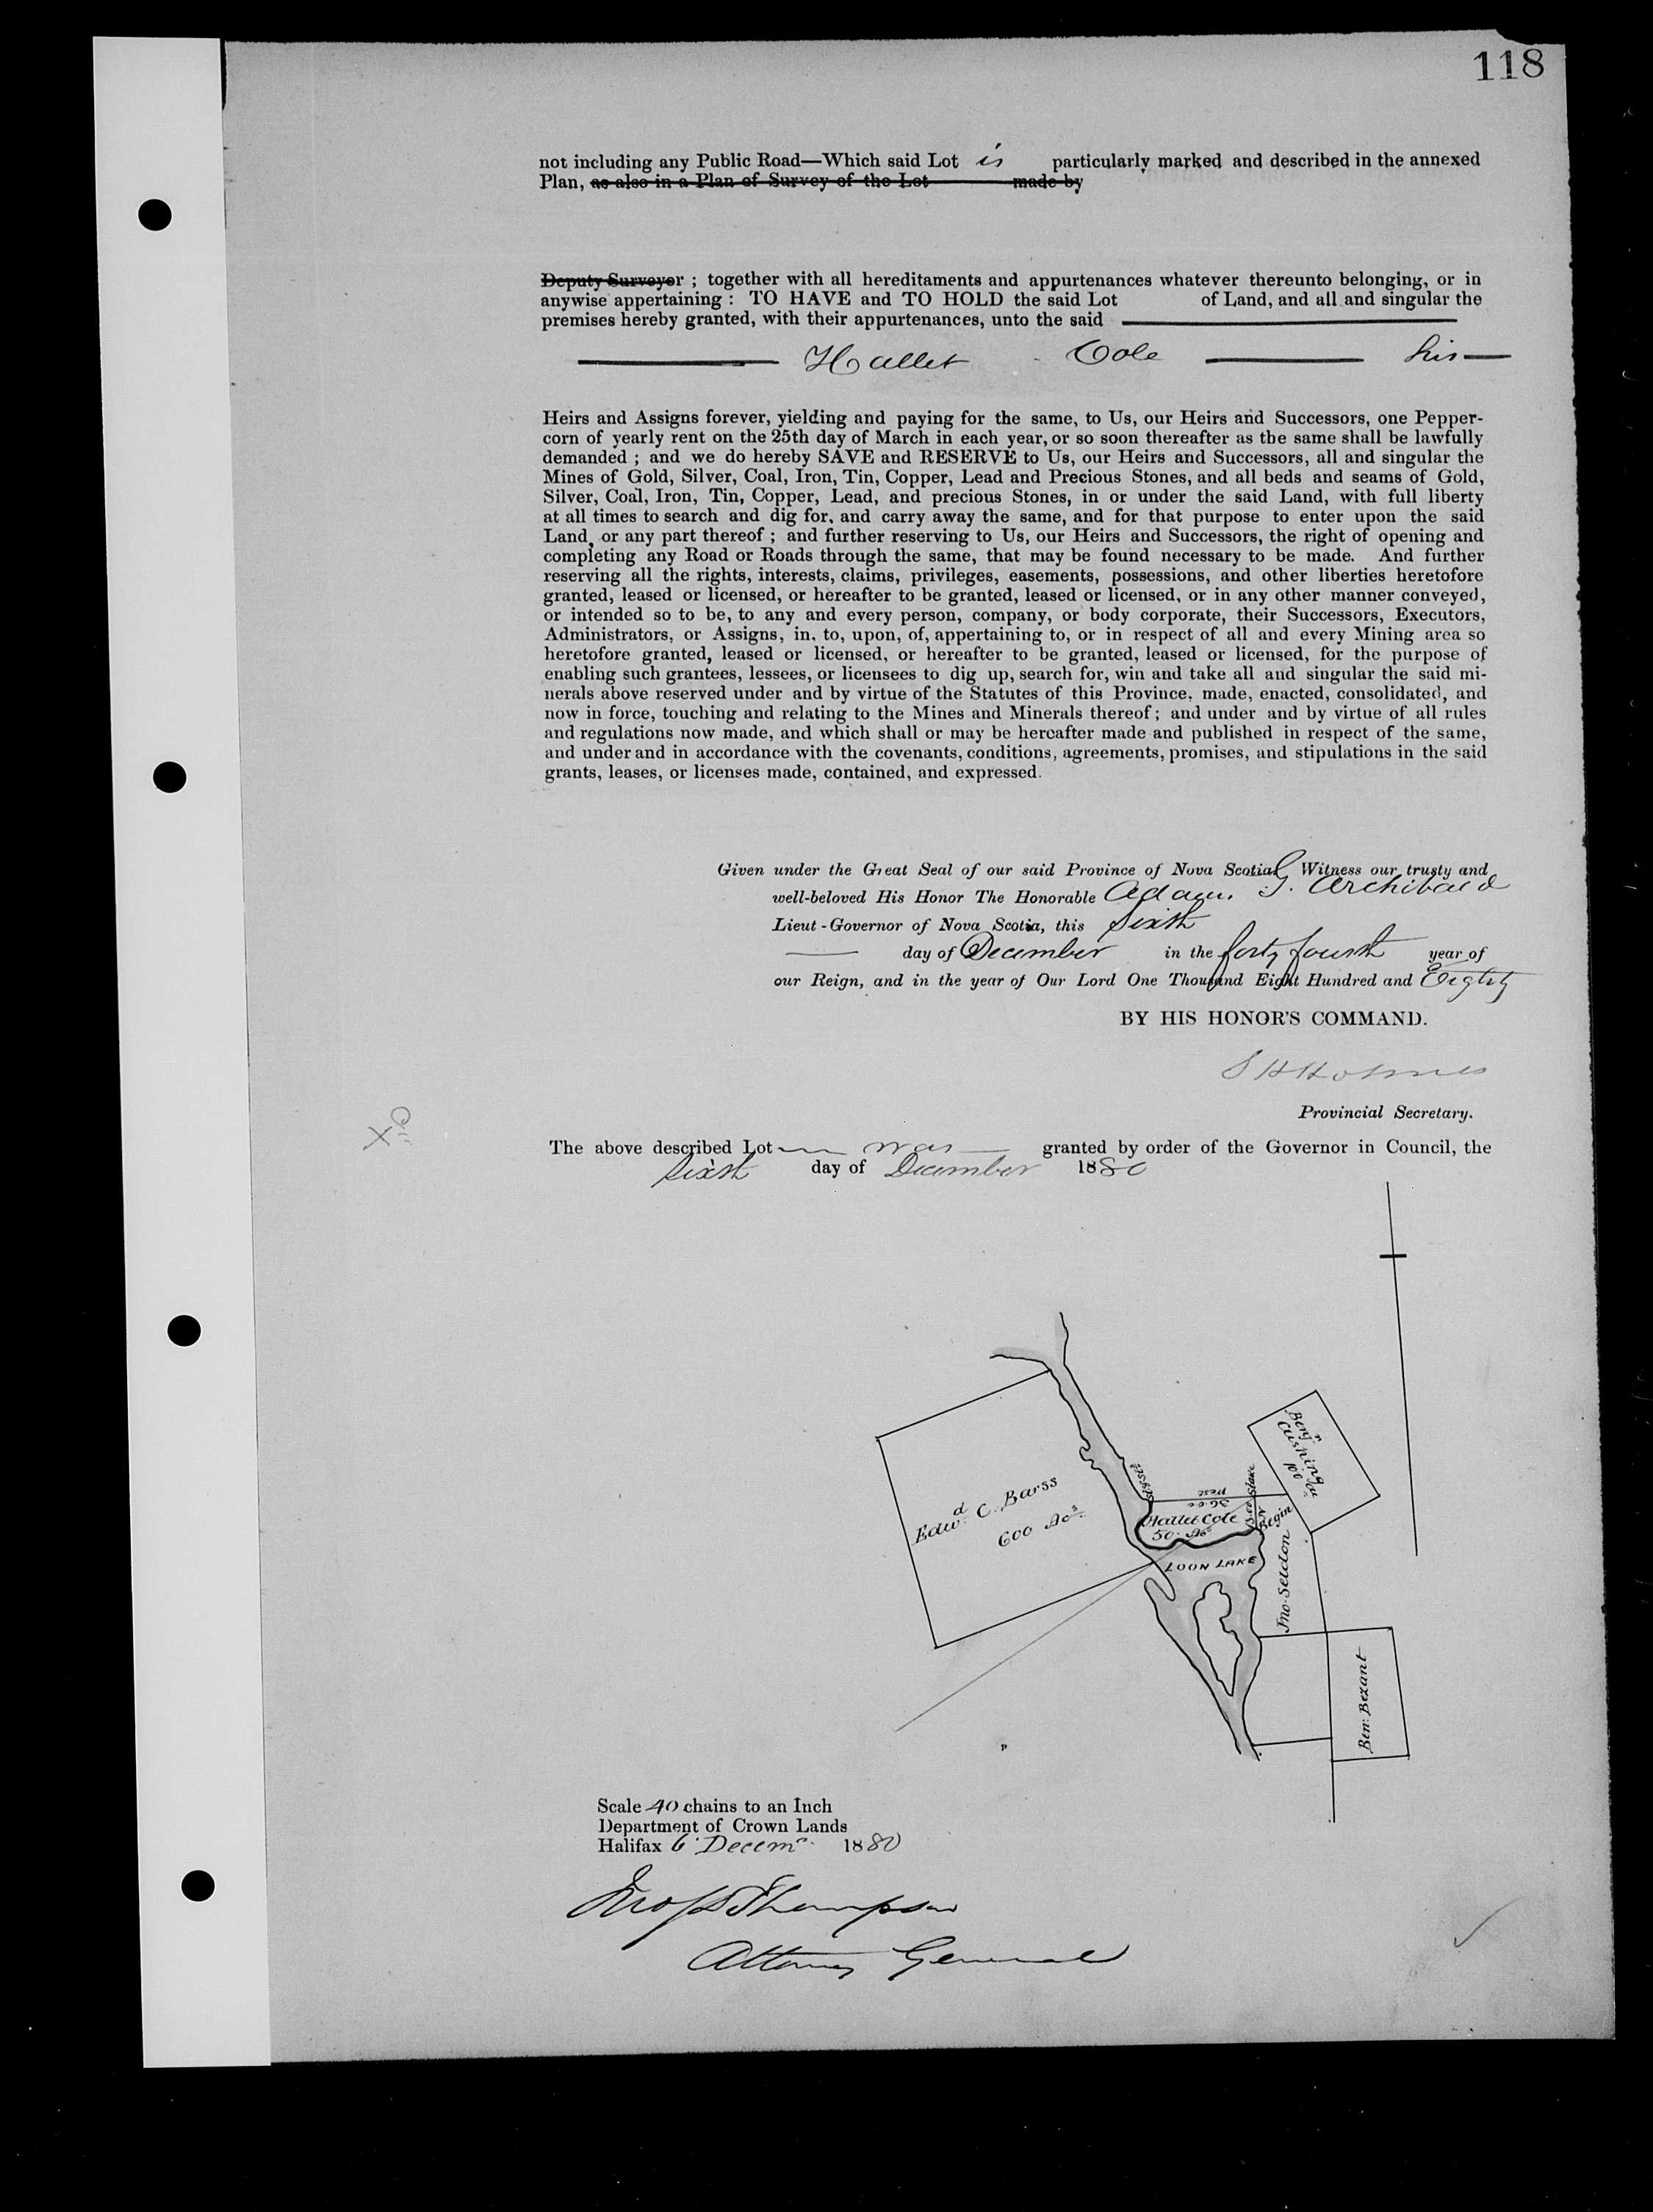 118
not including any Public Road—Which said Lot is particularly marked and described in the annexed
Plan, as also in a Plan of Survey of the Lot made by
Deputy Surveyor ; together with all hereditaments and appurtenances whatever thereunto belonging, or in
anywise appertaining : TO HAVE and TO HOLD the said Lot of Land, and all and singular the
premises hereby granted, with their appurtenances, unto the said
Hallet Cole his
Heirs and Assigns forever, yielding and paying for the same, to Us, our Heirs and Successors, one Pepper-
corn of yearly rent on the 25th day of March in each year, or so soon thereafter as the same shall be lawfully
demanded ; and we do hereby SAVE and RESERVE to Us, our Heirs and Successors, all and singular the
Mines of Gold, Silver, Coal, Iron, Tin, Copper, Lead and Precious Stones, and all beds and seams of Gold,
Silver, Coal, Iron, Tin, Copper, Lead, and precious Stones, in or under the said Land, with full liberty
at all times to search and dig for, and carry away the same, and for that purpose to enter upon the said
Land, or any part thereof ; and further reserving to Us, our Heirs and Successors, the right of opening and
completing any Road or Roads through the same, that may be found necessary to be made. And further
reserving all the rights, interests, claims, privileges, easements, possessions, and other liberties heretofore
granted, leased or licensed, or hereafter to be granted, leased or licensed, or in any other manner conveyed,
or intended so to be, to any and every person, company, or body corporate, their Successors, Executors,
Administrators, or Assigns, in, to, upon, of, appertaining to, or in respect of all and every Mining area so
heretofore granted, leased or licensed, or hereafter to be granted, leased or licensed, for the purpose of
enabling such grantees, lessees, or licensees to dig up, search for, win and take all and singular the said mi-
nerals above reserved under and by virtue of the Statutes of this Province, made, enacted, consolidated, and
now in force, touching and relating to the Mines and Minerals thereof ; and under and by virtue of all rules
and regulations now made, and which shall or may be hereafter made and published in respect of the same,
and under and in accordance with the covenants, conditions, agreements, promises, and stipulations in the said
grants, leases, or licenses made, contained, and expressed.
Given under the Great Seal of our said Province of Nova Scotia. Witness our trusty and
well-beloved His Honor The Honorable Adam G. Archibald
Lieut-Governor of Nova Scotia, this Sixth
day of December in the forty fourth year of
our Reign, and in the year of Our Lord One Thousand Eight Hundred and Eighty
BY HIS HONOR'S COMMAND.
S H Holmes
Provincial Secretary.
The above described Lot was granted by order of the Governor in Council, the
Sixth day of December 1880
Benjn Cushing
100
Edwd. C. Barss
600 Acs.
West
36.00
Hallet Cole
50 Acs
Stake
Begin
LOON LAKE
Jno. Seldon
Ben: Bezant
Scale 40 chains to an Inch
Department of Crown Lands
Halifax 6 Decemr. 1880
Jno S D Thompson
Attorney General